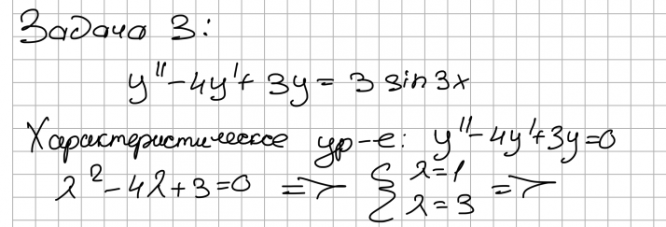 Задача 3:
y'' - 4y' + 3y = 3 sin 3x
Характеристическое ур-е: y'' - 4y' + 3y = 0
λ² - 4λ + 3 = 0 => { λ = 1 =>
λ = 3